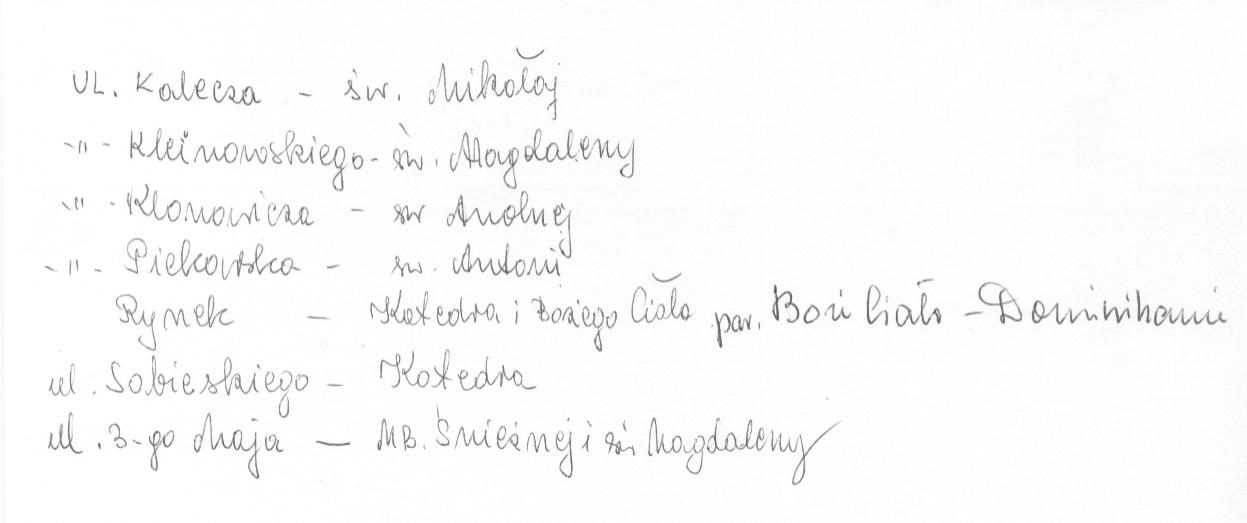 UL. Kalecza - św. Mikołaj
-"- Kleinowskiego - św. Magdaleny
-"- Klonowicza - św Andrzej
-"- Piekarska - św. Antoni
Rynek - Katedra i Bożego Ciała par. Boże Ciało - Dominikanie
ul. Sobieskiego - Katedra
ul. 3-go Maja - MB. Śnieżnej i św Magdaleny